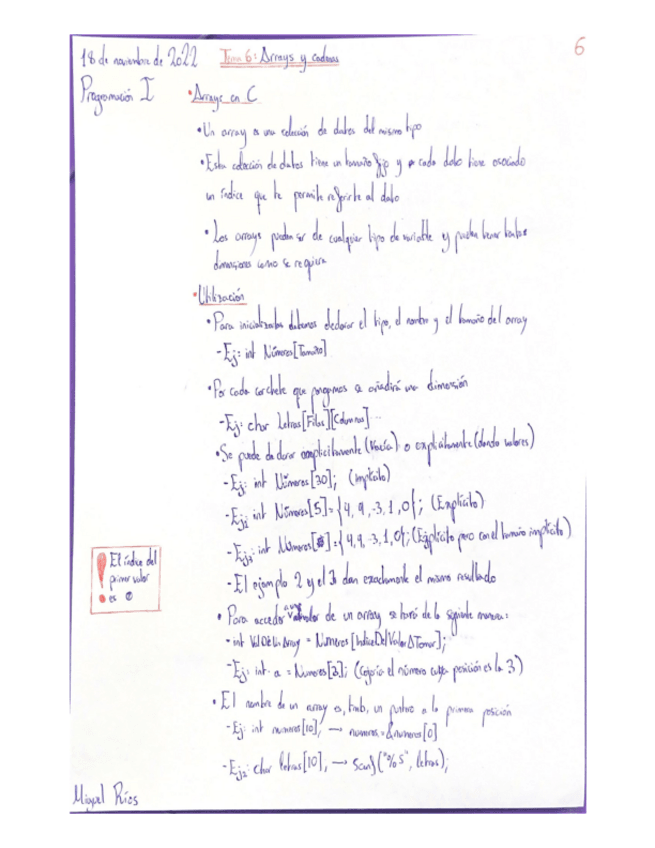 18 de noviembre de 2022 Tema 6: Arrays y cadenas
6
Programación I
• Arrays en C
• Un array es una colección de datos del mismo tipo
• Esta colección de datos tiene un tamaño fijo y cada dato tiene asociado
un índice que te permite referirte al dato
• Los arrays pueden ser de cualquier tipo de variable y pueden tener tantas
dimensiones como se requiera
• Utilización
• Para inicializarlos debemos declarar el tipo, el nombre y el tamaño del array
- Ej: int Números[Tamaño]
• Por cada corchete que pongamos se añadirá una dimensión
- Ej: char Letras[Filas][Columnas]...
• Se puede declarar implícitamente (Vacía) o explícitamente (dando valores)
- Ej: int Números[30]; (Implícito)
- Ej2: int Números[5]={4,9,-3,1,0}; (Explícito)
- Ej3: int Números[]={4,9,-3,1,0}; (Explícito pero con el tamaño implícito)
- El ejemplo 2 y el 3 dan exactamente el mismo resultado
! El índice del
primer valor
es 0
• Para acceder a un valor de un array se hará de la siguiente manera:
- int ValDeUnArray = Numeros[IndiceDelValorATomar];
- Ej: int a = Numeros[3]; (Copia el número cuya posición es la 3)
• El nombre de un array es, tamb, un puntero a la primera posición
- Ej: int numeros[10]; → numeros=&numeros[0]
- Ej2: char letras[10]; → scanf("%s", letras);
Miguel Ríos